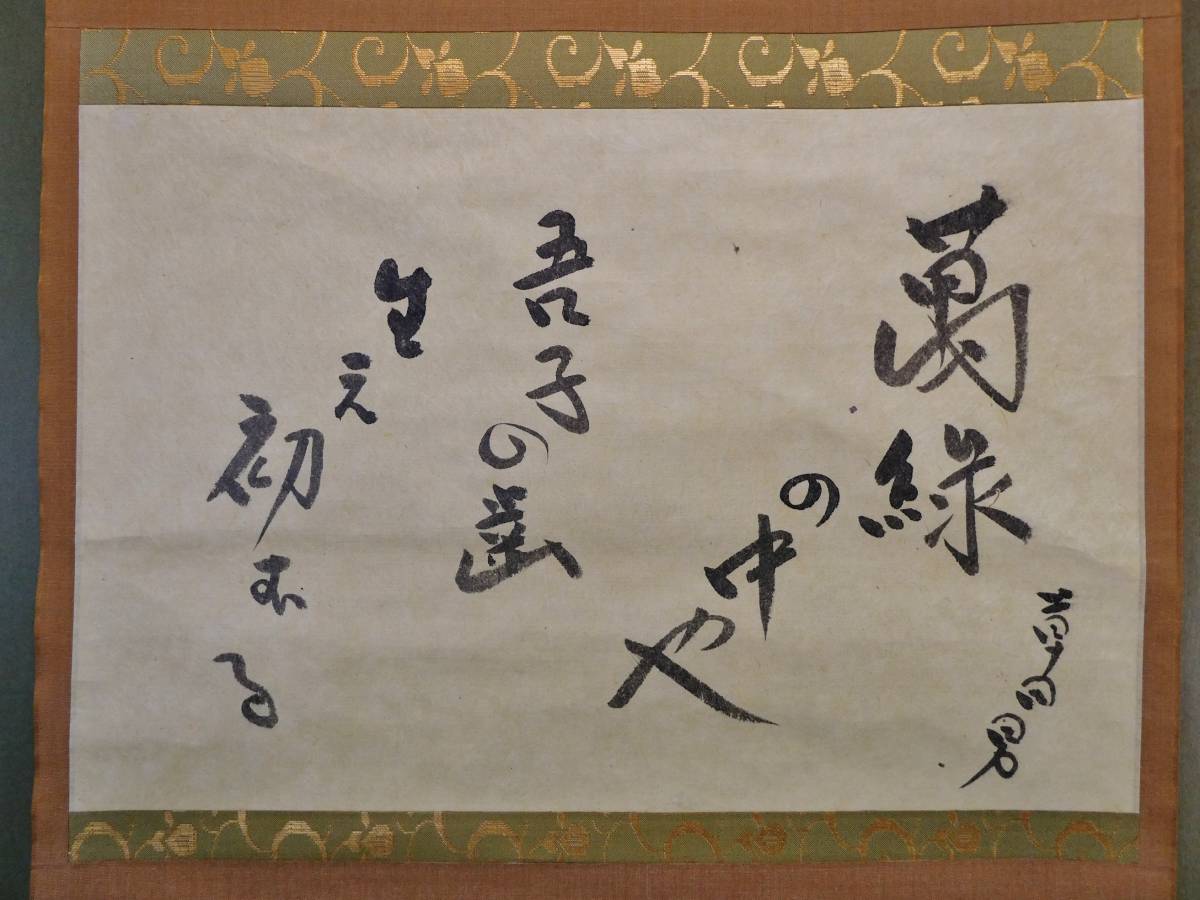 萬緑
の中や
吾子の歯
生え
初むる
草田男